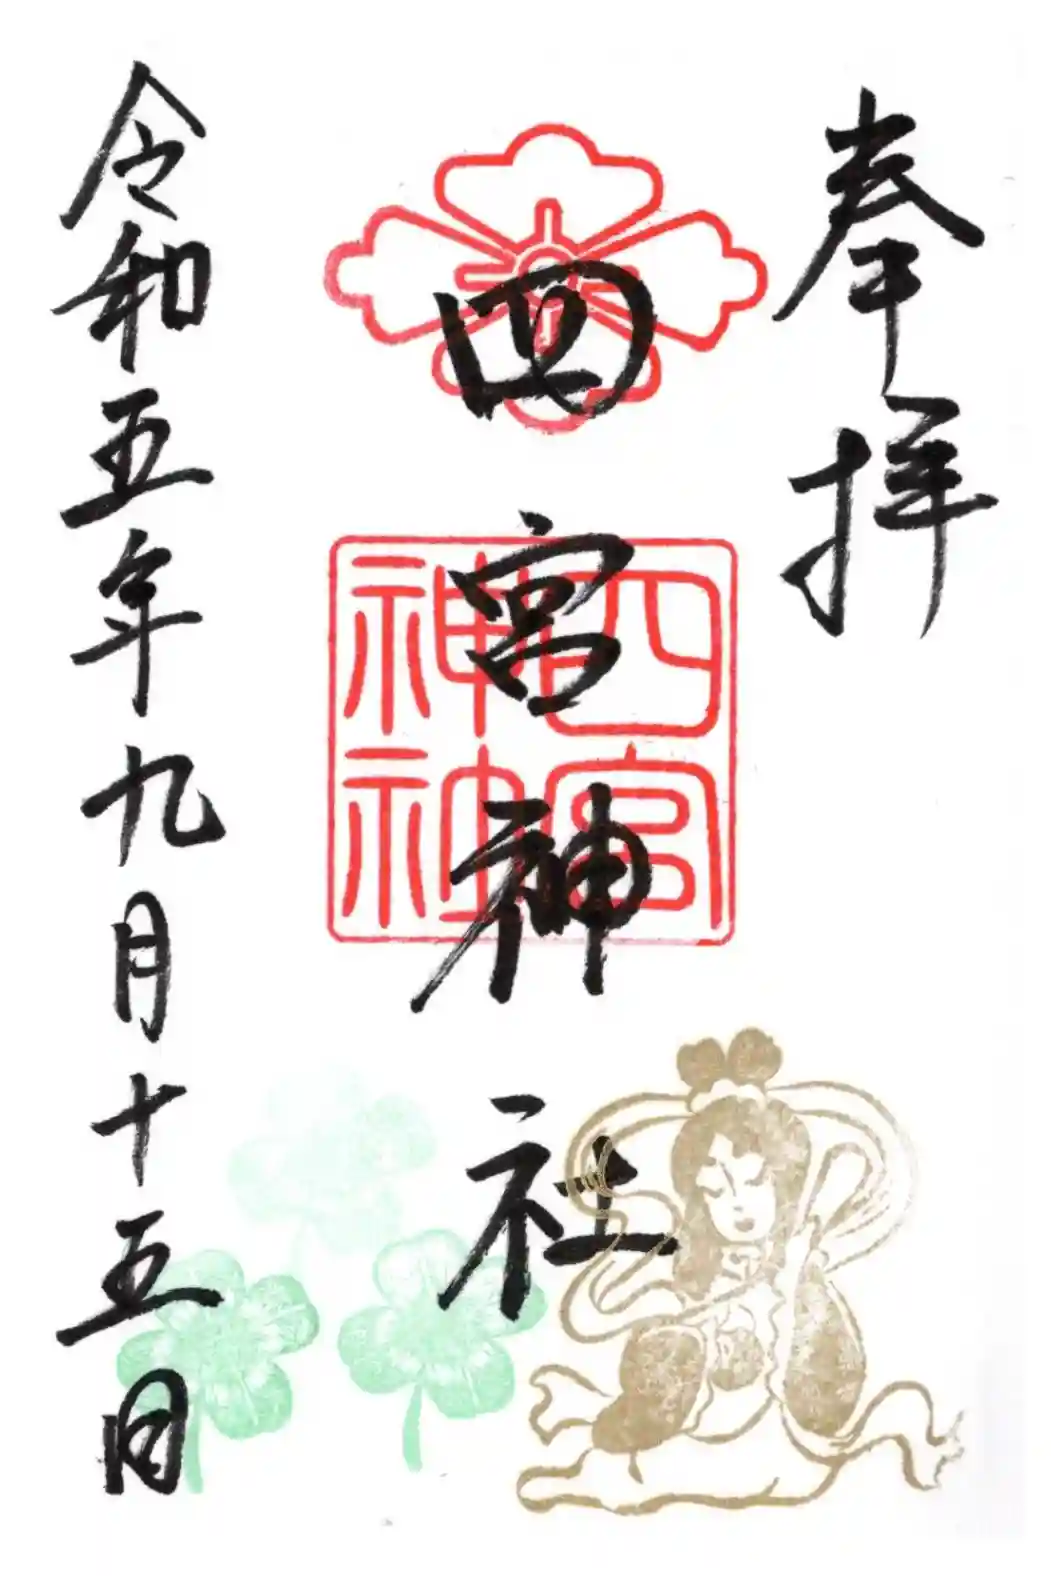 奉拝
四宮神社
四宮神社
令和五年九月十五日